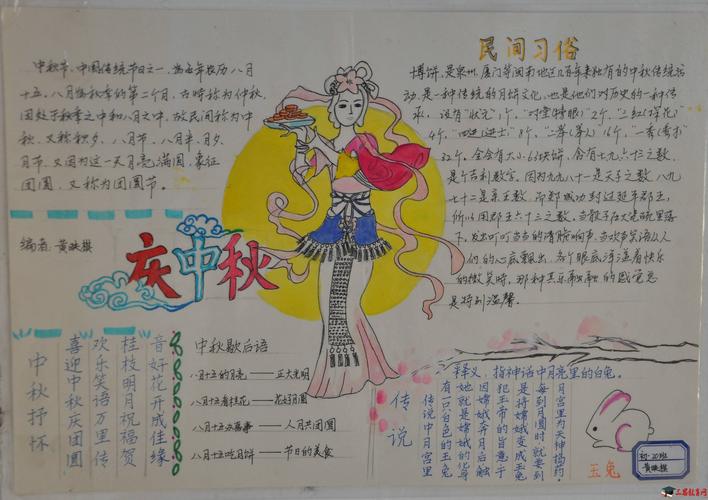 中秋节，中国传统节日之一，为每年农历八月
十五，八月为秋季的第二个月，古时称为仲秋，
因处于秋季之中和八月之中，故民间称为中
秋，又称秋夕、八月节、八月半、月夕、
月节，又因为这一天月亮满圆，象征
团圆，又称为团圆节。
编者：黄
庆中秋
民间习俗
博饼，是泉州、厦门等闽南地区几百年来独有的中秋传统活
动，是一种传统的月饼文化，也是他们对历史的一种传
承，设有“状元”1个，“对堂(榜眼)”2个，“三红(探花)”
4个，“四进(进士)”8个，“二举(举人)”16个，“一秀(秀才)”
32个，全会有大小63块饼，含有七九六十三之数，
是个吉利数字。因为九九八十一是天子之数，八九
七十二是亲王数，而郑成功封过延平郡王，
所以用郡王六十三之数。当骰子在大瓷碗里落
下，发出叮叮当当的清脆响声，当欢声笑语从人
们的心底飘出，各个眼底洋溢着快乐
的微笑时，那种其乐融融的感觉总
是特别温馨。
中秋抒怀
喜迎中秋庆团圆
欢乐笑语万里传
桂枝明月祝福贺
音好花开成佳缘
中秋歇后语
八月十五的月亮——正大光明
八月十五看桂花——花好月圆
八月十五办喜事——人月共团圆
八月十五吃月饼——节日的美食
传说
释义：指神话中月亮里的白兔。
月宫里为天神捣药，
每到月圆时就要到
是将嫦娥变成玉兔
犯玉帝的旨意，于
因嫦娥奔月后触
她就是嫦娥的化身
有一只白色的玉兔
传说中月宫里
玉兔
初一20班
黄
三昌教育网